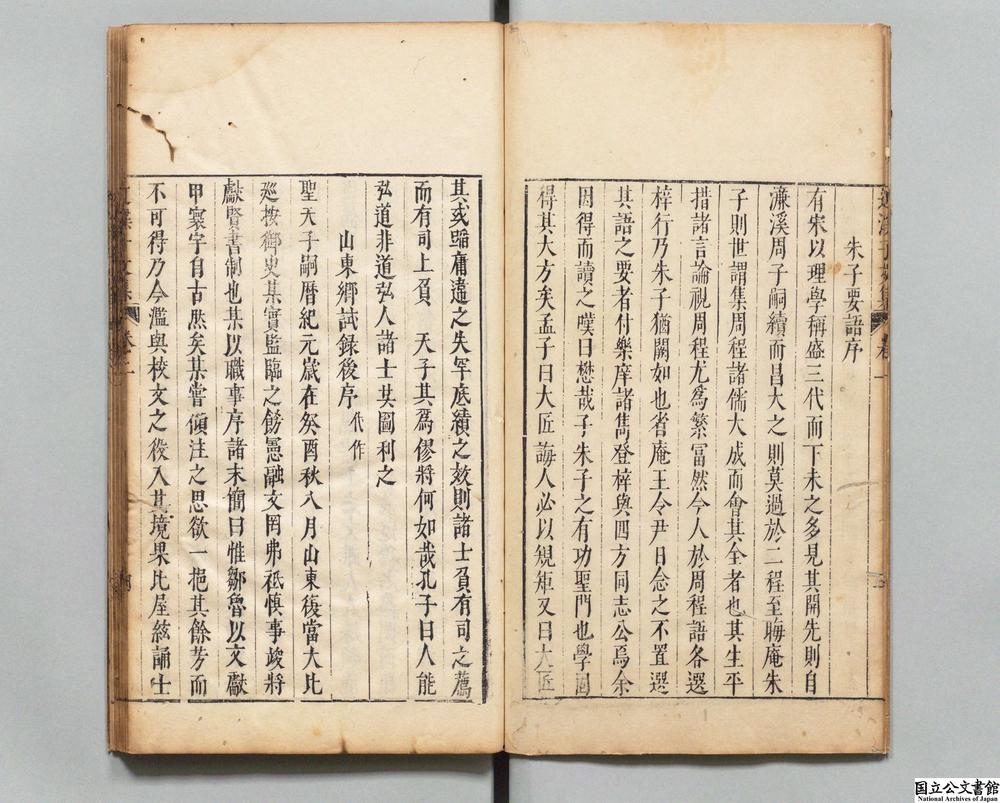 朱子要語序
有宋以理學稱盛三代而下未之多見其開先則自
濂溪周子嗣續而昌大之則莫過於二程至晦庵朱
子則世謂集周程諸儒大成而會其全者也其生平
措諸言論視周程尤為繁冨然今人於周程語各選
梓行乃朱子猶闕如也省庵王令尹日念之不置選
其語之要者付樂庠諸雋登梓與四方同志公焉余
因得而讀之嘆曰懋哉子朱子之有功聖門也學固
得其大方矣孟子曰大匠誨人必以規矩又曰大匠
其或踰庸違之失罕底績之效則諸士負有司之薦
而有司上負 天子其為僇將何如哉孔子曰人能
弘道非道弘人諸士其圖利之
山東鄉試録後序 代作
聖天子嗣曆紀元歲在癸酉秋八月山東復當大比
巡按御史某實監臨之飭憲融文罔弗祗慎事竣將
獻賢書制也某以職事序諸末簡曰惟鄒魯以文獻
甲寰宇自古然矣某嘗傾注之思欲一挹其餘芳而
不可得乃今濫與校文之役入其境果比屋絃誦士
卷二
国立公文書館
National Archives of Japan